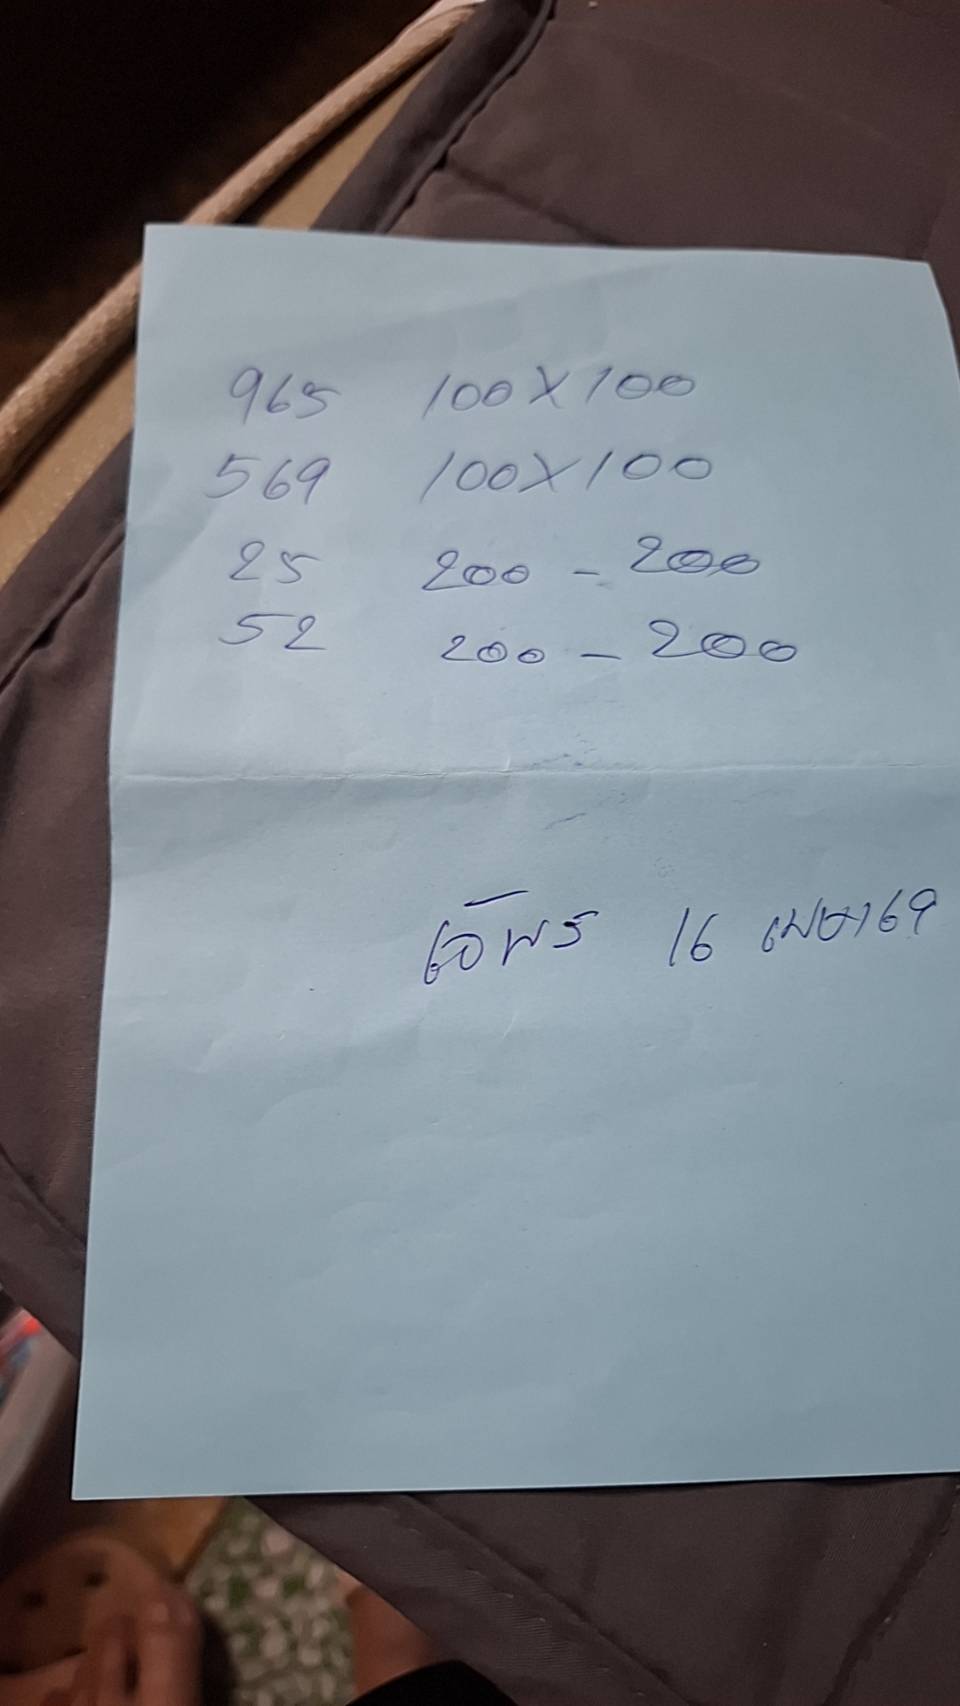 965 100X100
569 100X100
25 200 - 200
52 200 - 200
16 เมษา69